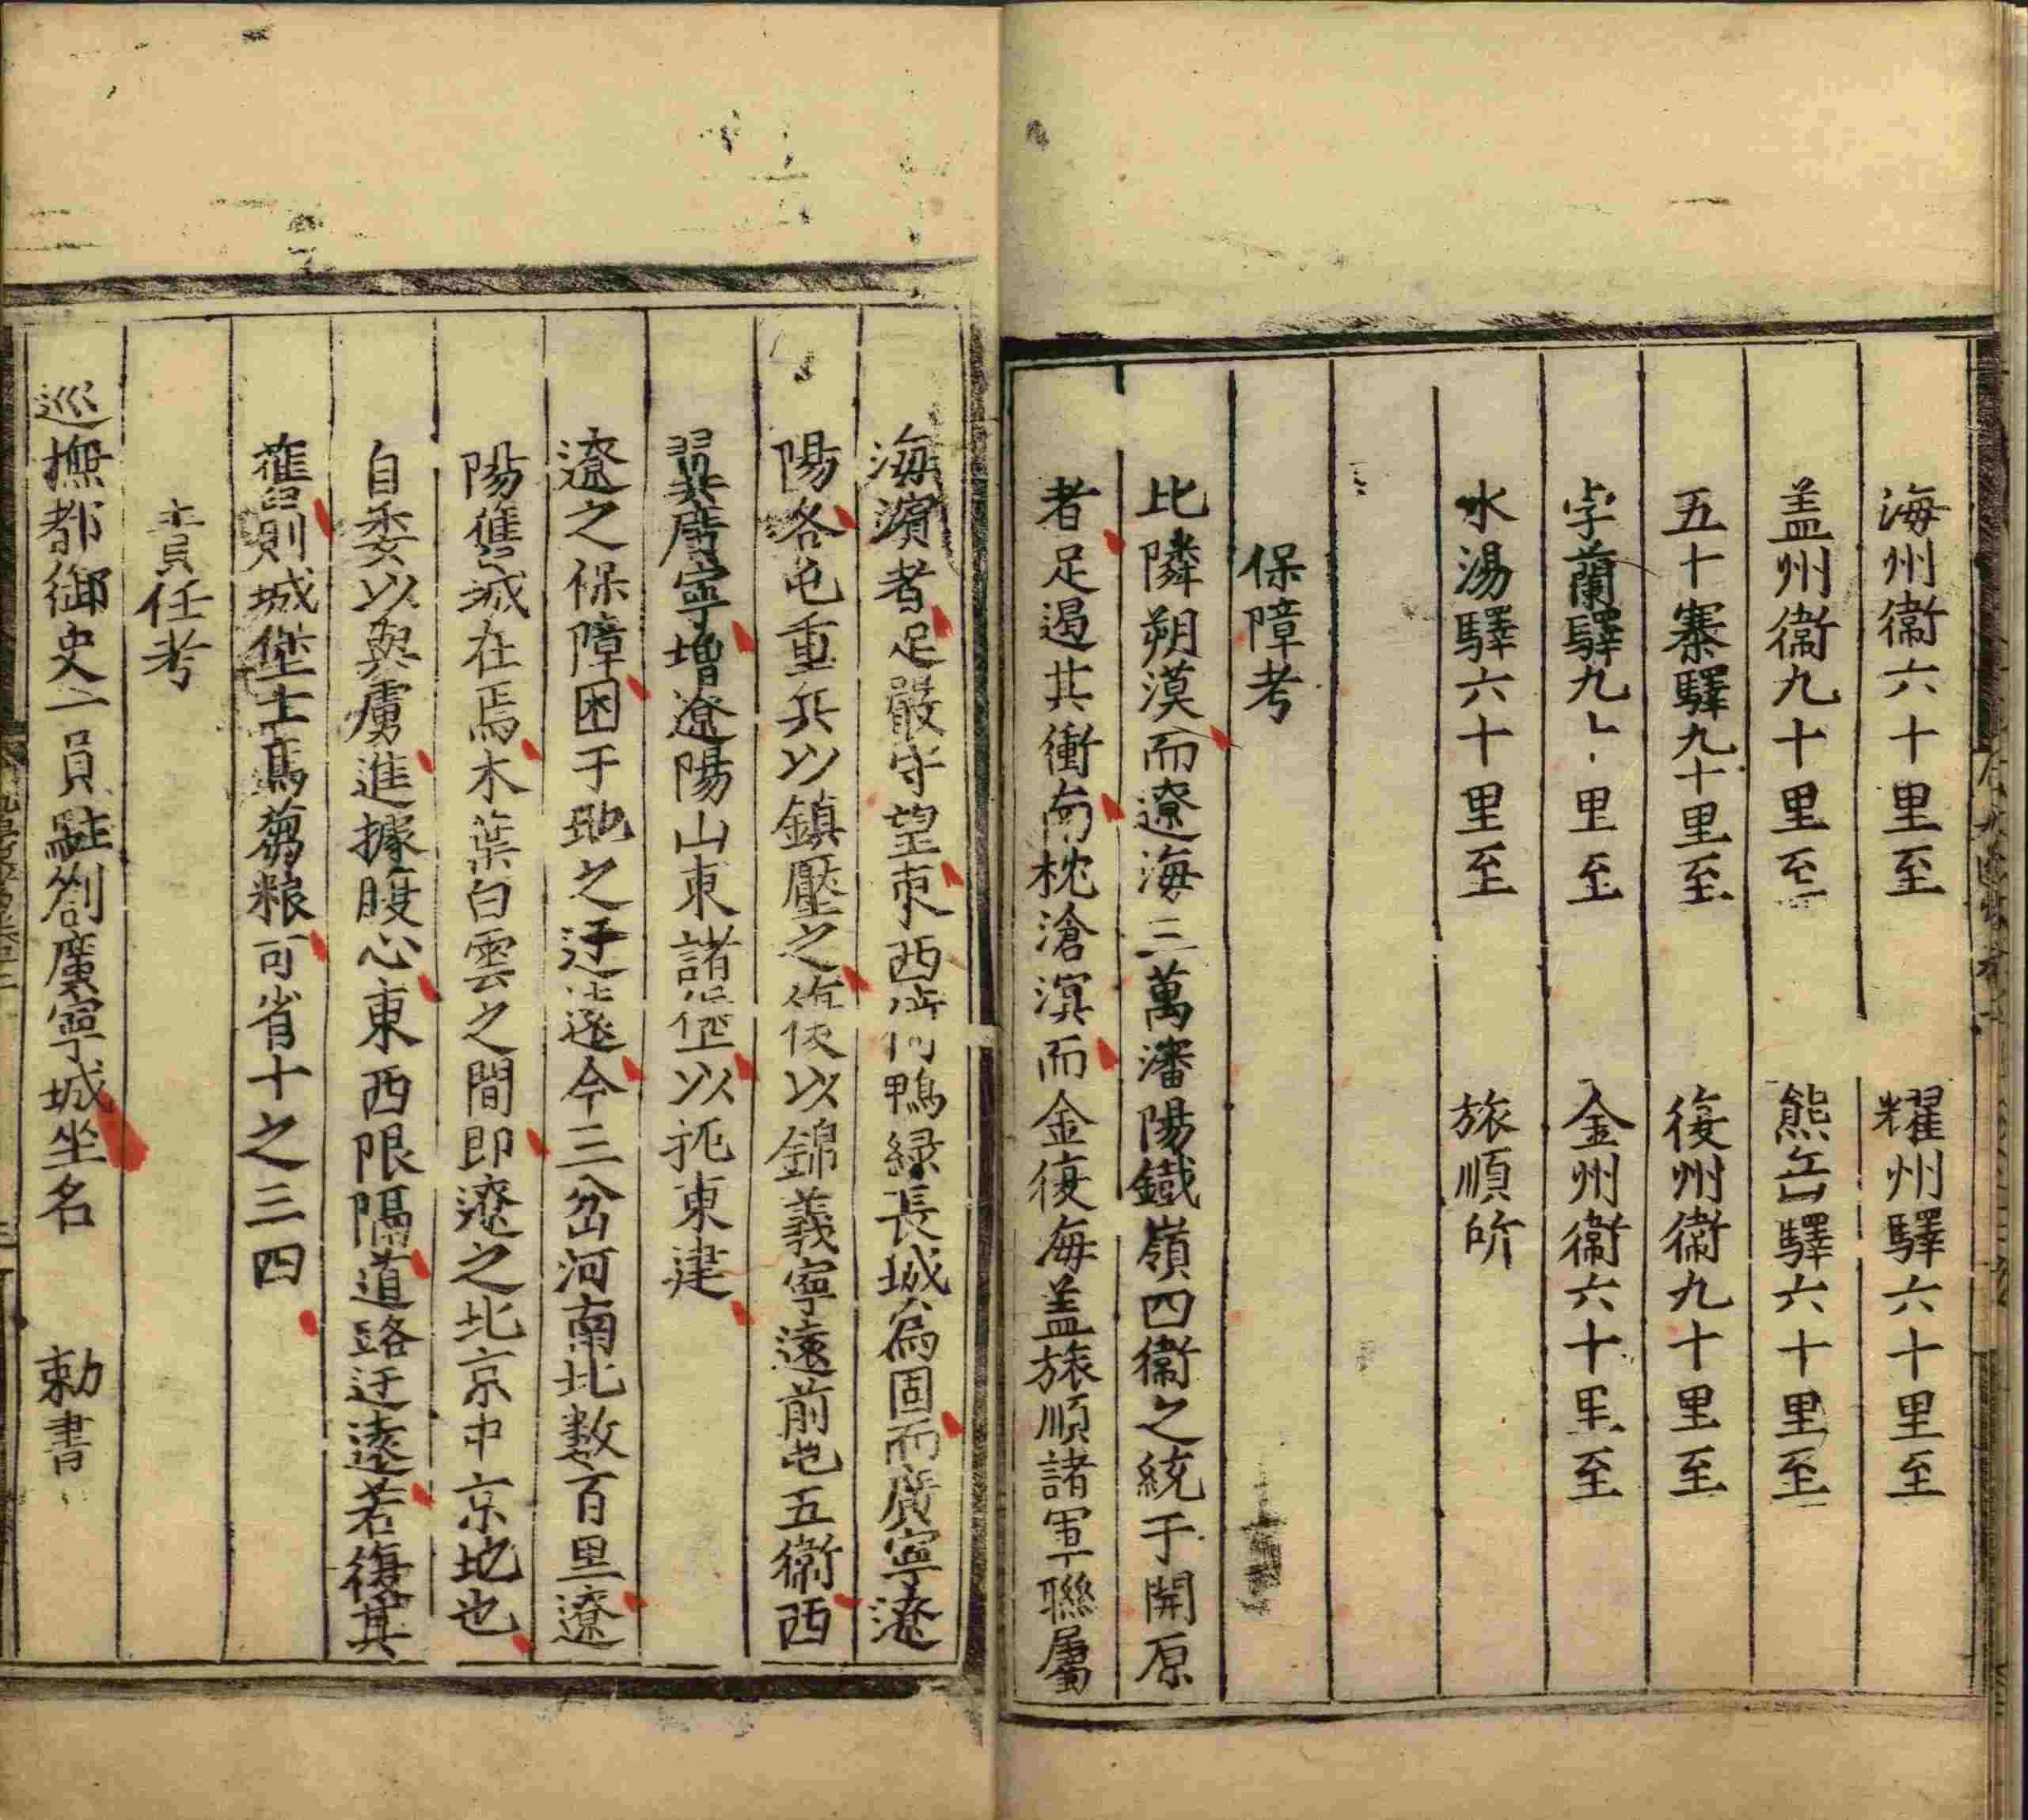 海州衞六十里至 耀州驛六十里至
盖州衞九十里至 熊岳驛六十里至
五十寨驛九十里至 復州衞九十里至
孛蘭驛九十里至 金州衞六十里至
木湯驛六十里至 旅順所
保障考
北隣朔漠而遼海三萬瀋陽鐡嶺四衞之統于開原
者足遏其衝南枕滄溟而金復海盖旅順諸軍聯屬
海濱者足嚴守望東西倚鴨綠長城爲固而廣寧遼
陽各屯重兵以鎮壓之復以錦義寧遠前屯五衞西
翼廣寧增遼陽山東諸堡以扼東建
遼之保障困于地之迂遠今三岔河南北數百里遼
陽舊城在焉木葉白雲之間即遼之北京中京地也
自委以與虜進據腹心東西限隔道路迂遠若復其
舊則城堡士馬芻粮可省十之三四
責任考
巡撫都御史一員駐劄廣寧城坐名 勅書